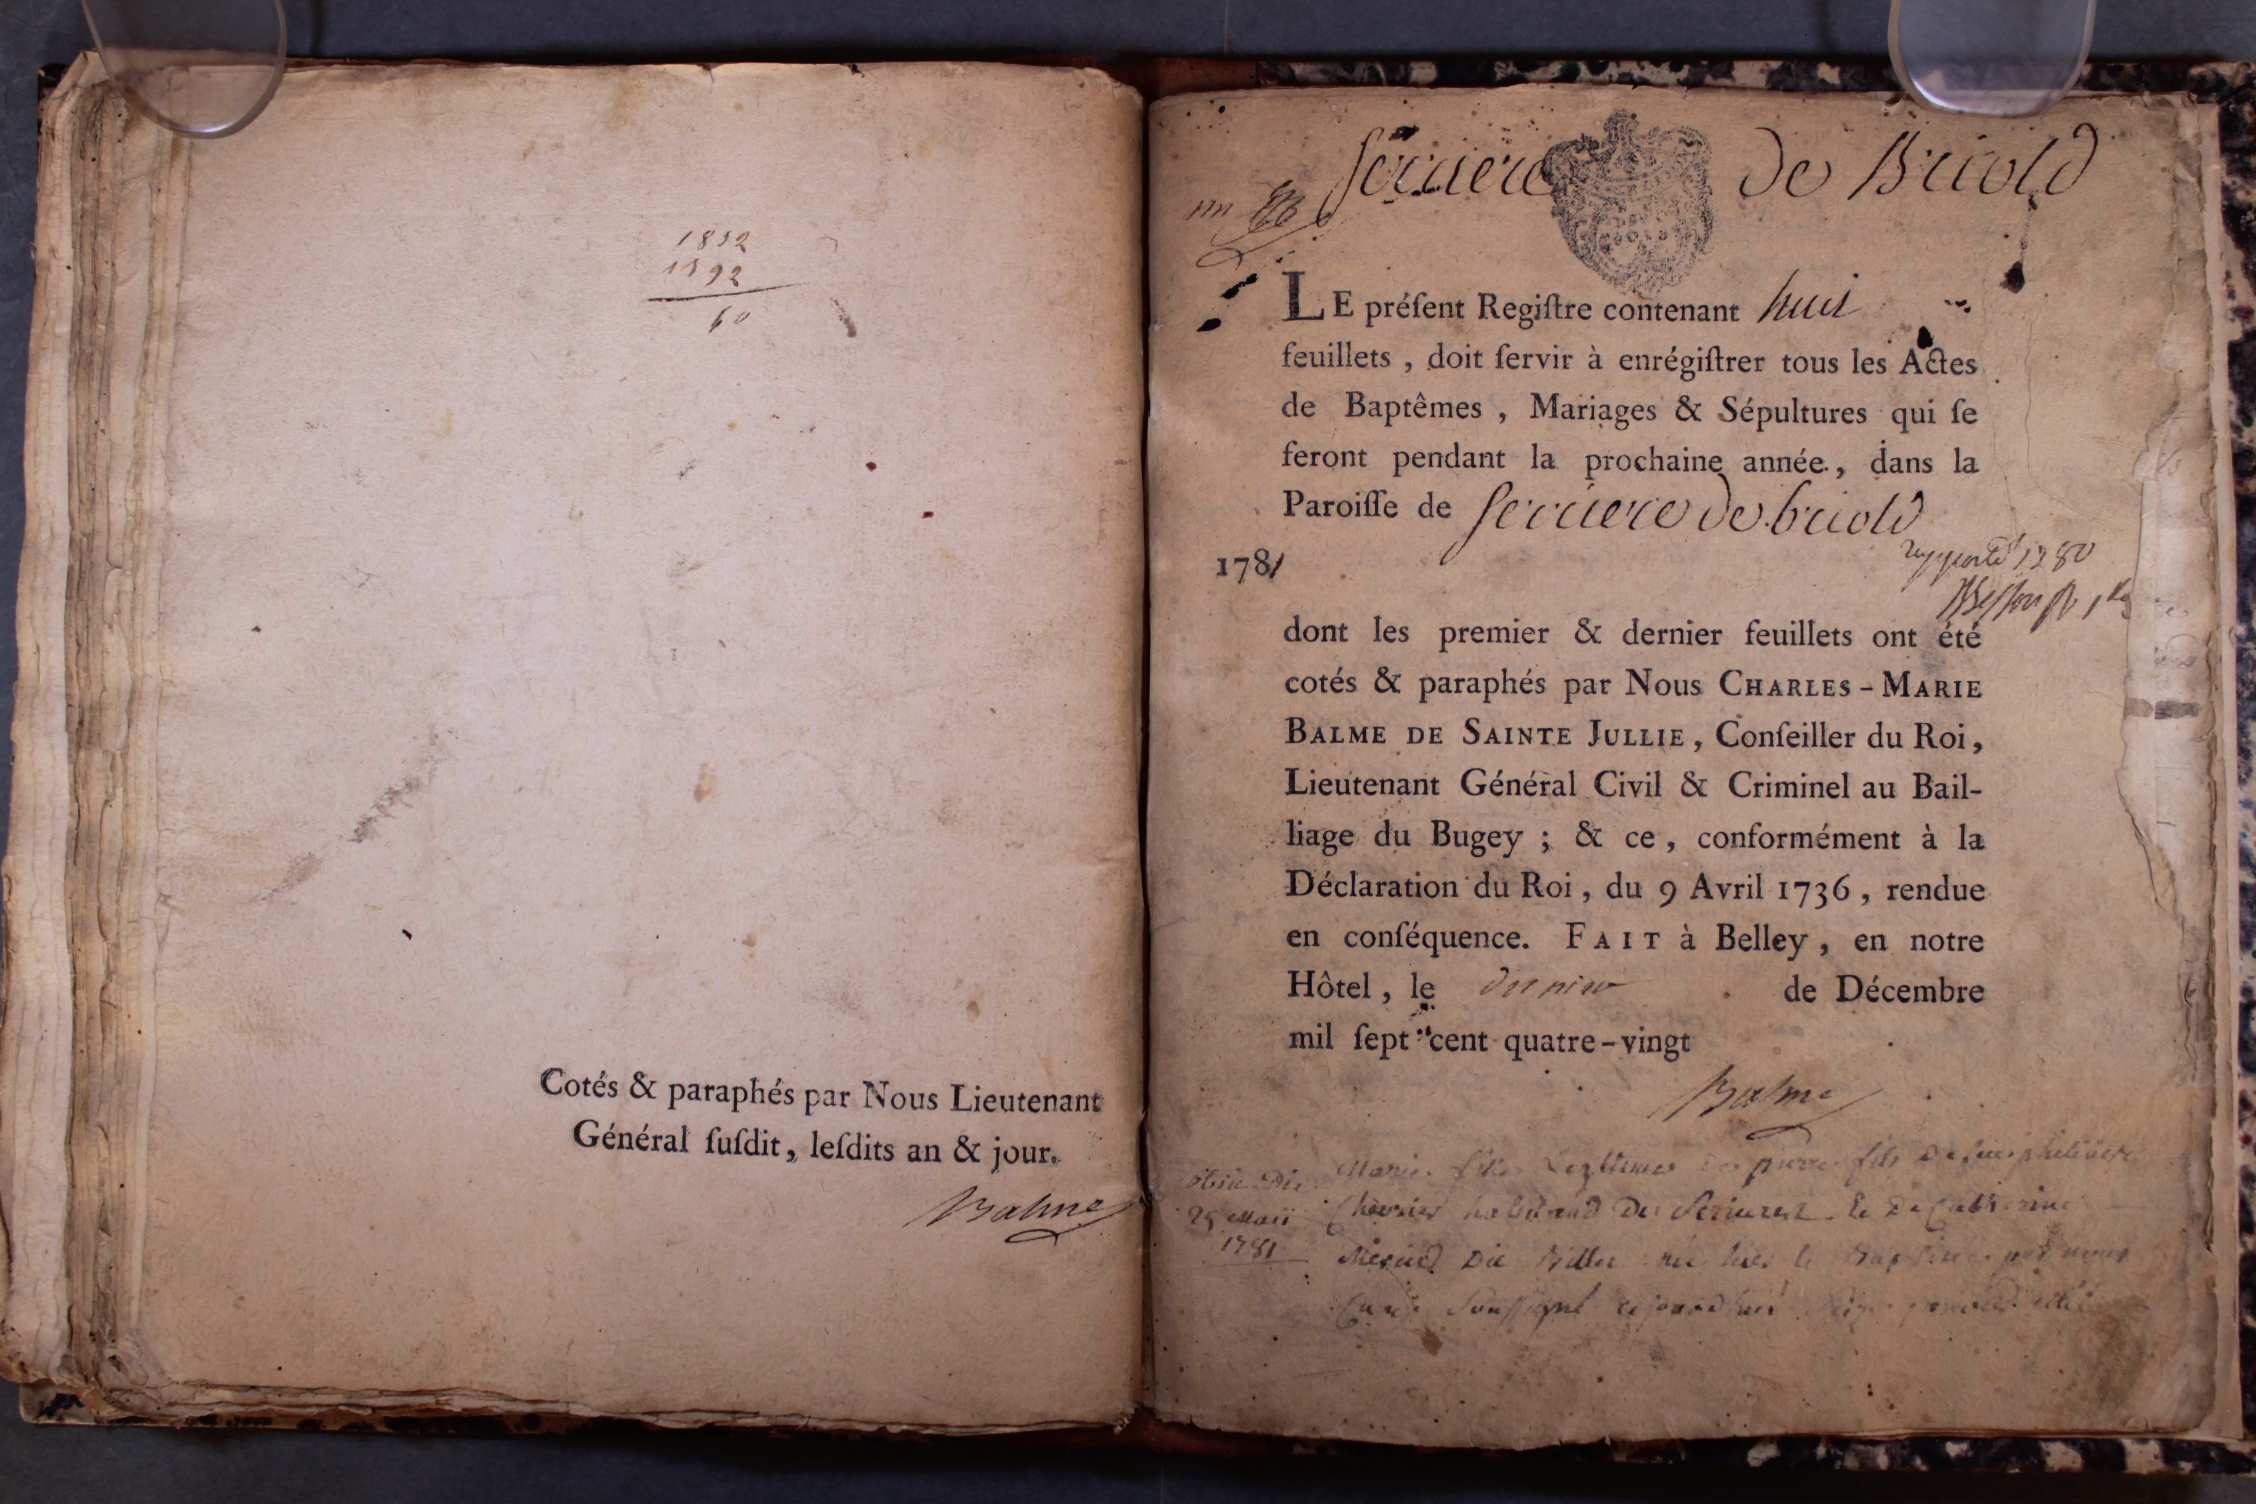 1852
1792
60
Cotés & paraphés par Nous Lieutenant
Général ſuſdit, leſdits an & jour.
Balme
ſerriere de Briold
LE préſent Regiſtre contenant huit
feuillets, doit ſervir à enrégiſtrer tous les Actes
de Baptêmes, Mariages & Sépultures qui ſe
feront pendant la prochaine année, dans la
Paroiſſe de ſerriere de briold
1781
rapporté 1780
dont les premier & dernier feuillets ont été
cotés & paraphés par Nous CHARLES-MARIE
BALME DE SAINTE JULLIE, Conſeiller du Roi,
Lieutenant Général Civil & Criminel au Bail-
liage du Bugey ; & ce, conformément à la
Déclaration du Roi, du 9 Avril 1736, rendue
en conſéquence. FAIT à Belley, en notre
Hôtel, le dernier de Décembre
mil ſept cent quatre-vingt
Balme
25 Maii
1781
Marie fille Legitime de pierre fils de feu
Chevrier habitand De Serrieres Et De Catherine
née hier Et Baptisée par nous
Curé Soussigné